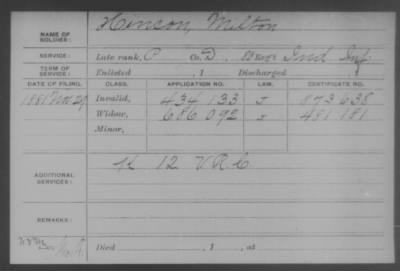 NAME OF SOLDIER: Henson, Milton
SERVICE: Late rank, P Co. D, Reg't Ind Inf
TERM OF SERVICE: Enlisted , 1 Discharged
DATE OF FILING. CLASS. APPLICATION NO. LAW. CERTIFICATE NO.
1881 Nov 29 Invalid, 434 133 J 873 638
Widow, 686 092 J 481 181
Minor,
ADDITIONAL SERVICES: K 12 V.R.C
REMARKS:
Died , 1 , at